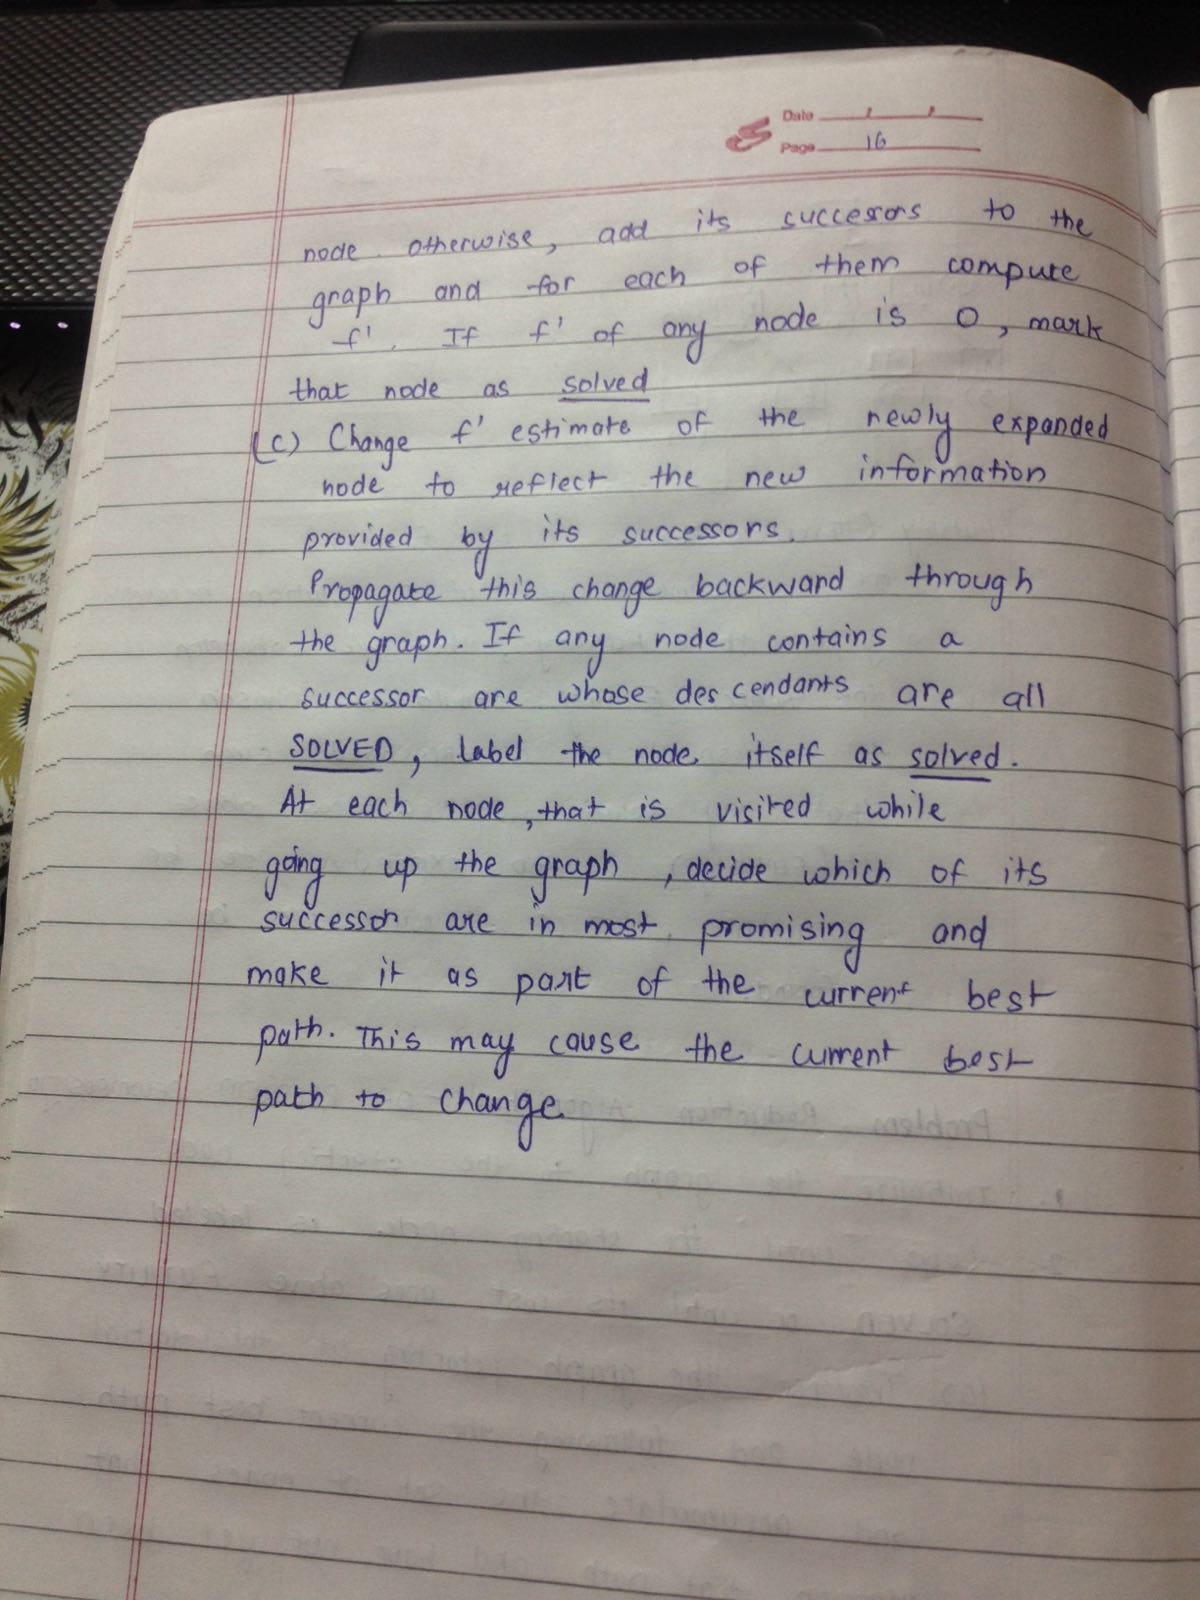 Date
Page 16
node otherwise, add its successors to the
graph and for each of them compute
f'. If f' of any node is 0, mark
that node as solved
(c) Change f' estimate of the newly expanded
node to reflect the new information
provided by its successors.
Propagate this change backward through
the graph. If any node contains a
successor are whose descendants are all
SOLVED, label the node itself as solved.
At each node, that is visited while
going up the graph, decide which of its
successor are in most promising and
make it as part of the current best
path. This may cause the current best
path to change